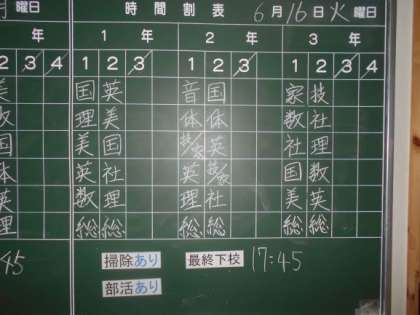 曜日 時間割表 6月16日火曜日
年 1年 2年 3年
2 3 4 1 2 3 1 2 3 1 2 3 4
美 国英 音国 家技
理美 体体 数社
国 美国 技/家英 社理
体 英社 英技/家 国数
英 数理 理社 美英
理 総総 総総 総総
45 掃除あり 最終下校 17:45
部活あり